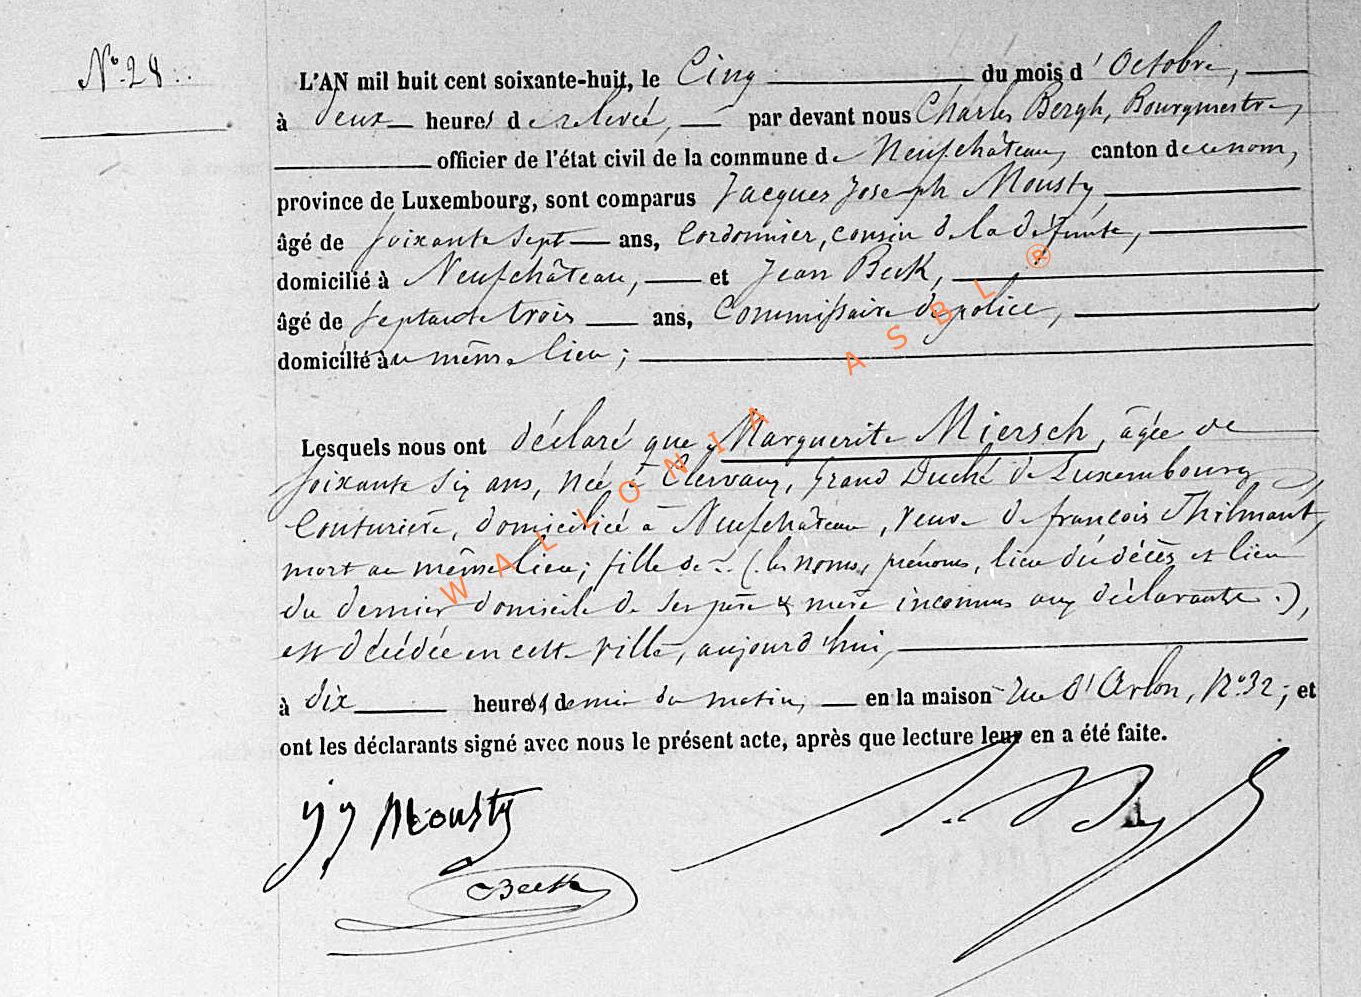 N° 28
L'AN mil huit cent soixante-huit, le Cinq du mois d'Octobre,
à deux heures de relevée, par devant nous Charles Bergh, Bourgmestre,
officier de l'état civil de la commune de Neufchâteau, canton de ce nom,
province de Luxembourg, sont comparus Jacques Joseph Mousty,
âgé de soixante sept ans, Cordonnier, cousin de la défunte,
domicilié à Neufchâteau, et Jean Beck,
âgé de septante trois ans, Commissaire de police,
domicilié au même lieu;
Lesquels nous ont déclaré que Marguerite Miersch, âgée de
soixante six ans, née à Clervaux, Grand Duché de Luxembourg,
Couturière, domiciliée à Neufchâteau, veuve de françois Thilmant,
mort au même lieu; fille de (les noms, prénoms, lieu du décès et lieu
du dernier domicile de ses père & mère inconnus aux déclarants.),
est décédée en cette ville, aujourd'hui,
à dix heures & demie du matin, en la maison rue d'Arlon, N° 32; et
ont les déclarants signé avec nous le présent acte, après que lecture leur en a été faite.
JJ Mousty
Beck
WALLONIA ASBL ®